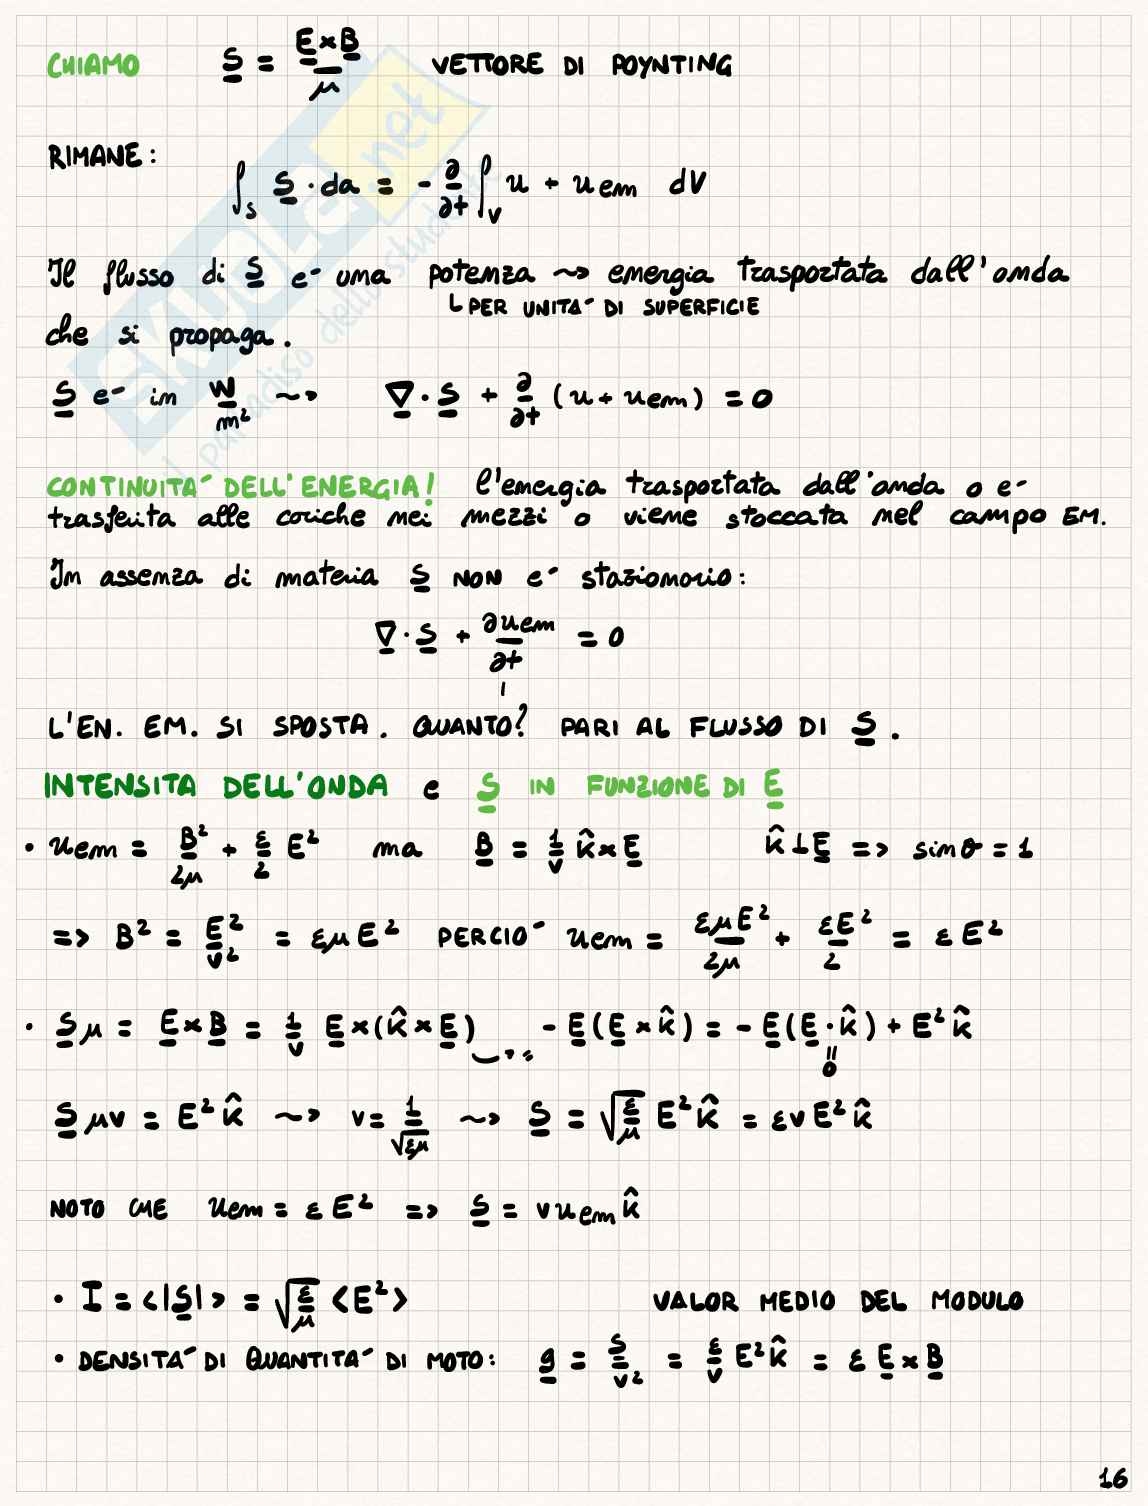 CHIAMO S = E×B/μ VETTORE DI POYNTING
RIMANE:
∫_S S · da = - ∂/∂t ∫_V u + u_em dV
Il flusso di S e- una potenza ~> energia trasportata dall'onda
└ PER UNITA' DI SUPERFICIE
che si propaga.
S e- in W/m² ~> ∇ · S + ∂/∂t (u + u_em) = 0
CONTINUITA' DELL'ENERGIA! l'energia trasportata dall'onda o e-
trasferita alle cariche nei mezzi o viene stoccata nel campo EM.
In assenza di materia S NON e' stazionario:
∇ · S + ∂u_em/∂t = 0
L'EN. EM. SI SPOSTA. QUANTO? PARI AL FLUSSO DI S.
INTENSITA DELL'ONDA e S IN FUNZIONE DI E
• u_em = B²/2μ + ε/2 E² ma B = 1/v k̂×E k̂⊥E => sinθ = 1
=> B² = E²/v² = εμE² PERCIO' u_em = εμE²/2μ + εE²/2 = εE²
• Sμ = E×B = 1/v E×(k̂×E) - E(E×k̂) = - E(E·k̂) + E²k̂
= 0
Sμv = E²k̂ ~> v = 1/√εμ ~> S = √ε/μ E²k̂ = εvE²k̂
NOTO CHE u_em = εE² => S = v u_em k̂
• I = <|S|> = √ε/μ <E²> VALOR MEDIO DEL MODULO
• DENSITA' DI QUANTITA' DI MOTO: g = S/v² = ε/v E²k̂ = ε E×B
16
SKUOLA.net
il paradiso dello studente